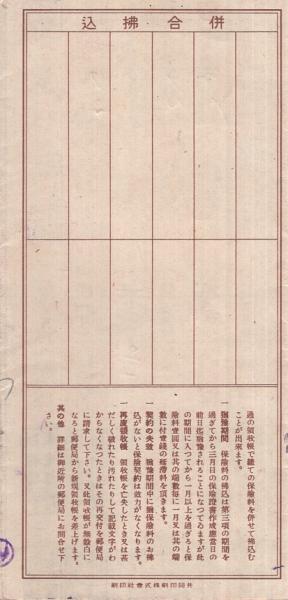 併合拂込
過の領收帳で總ての保險料を併せて拂込む
ことが出來ます。
一 猶豫期間 保險料の拂込は第三項の期間を
過ぎてから三月目の保險證書作成應當日の
前日迄猶豫されることになつてゐますが此
の期間に入つてから一月以上を過ぎると保
險料壹圓又は其の端數每に一月又は其の端
數に付壹錢の延滯料を頂きます。
一 契約の失效 猶豫期間中に猶保險料のお拂
込がないと保險契約は效力がなくなります。
一 再度領收帳 領收帳を亡失したとき又は甚
だしく破れたり汚れたりして記載文字がわ
からなくなつたときはその再交付を郵便局
に請求して下さい。又此領收帳が無餘白に
なると郵便局から新規領收帳を差上げます。
其の他 詳細は御近所の郵便局にお問合せ下
さい。
共同印刷株式會社印刷